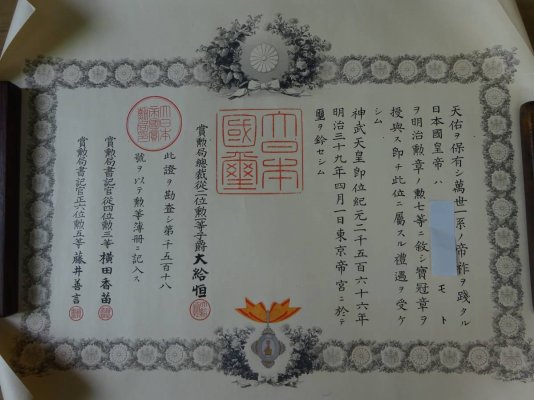 天佑ヲ保有シ萬世一系ノ帝祚ヲ踐タル
日本國皇帝ハ モト
ヲ明治勲章ノ勲七等ニ敍シ寶冠章ヲ
授與ス即チ此位ニ屬スル禮遇ヲ受ケ
シム
神武天皇即位紀元二千五百六十六年
明治三十九年四月一日東京帝宮ニ於テ
璽ヲ鈐セシム
大日本國璽
賞勲局總裁從二位勲一等子爵大給恒
此證ヲ勘査シ第千五百十八
號ヲ以テ勲等簿册ニ記入ス
賞勲局書記官從四位勲三等横田香苗
賞勲局書記官正六位勲五等藤井善言